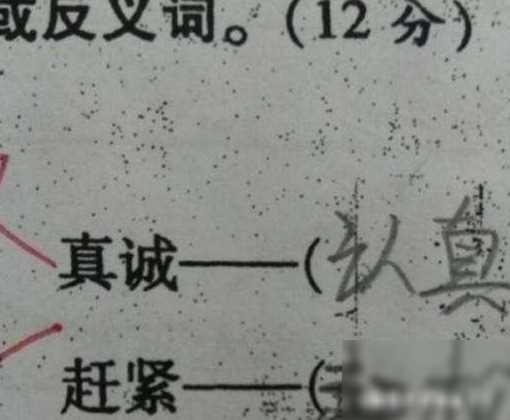 或反义词。(12分)
真诚——(认真
赶紧——(